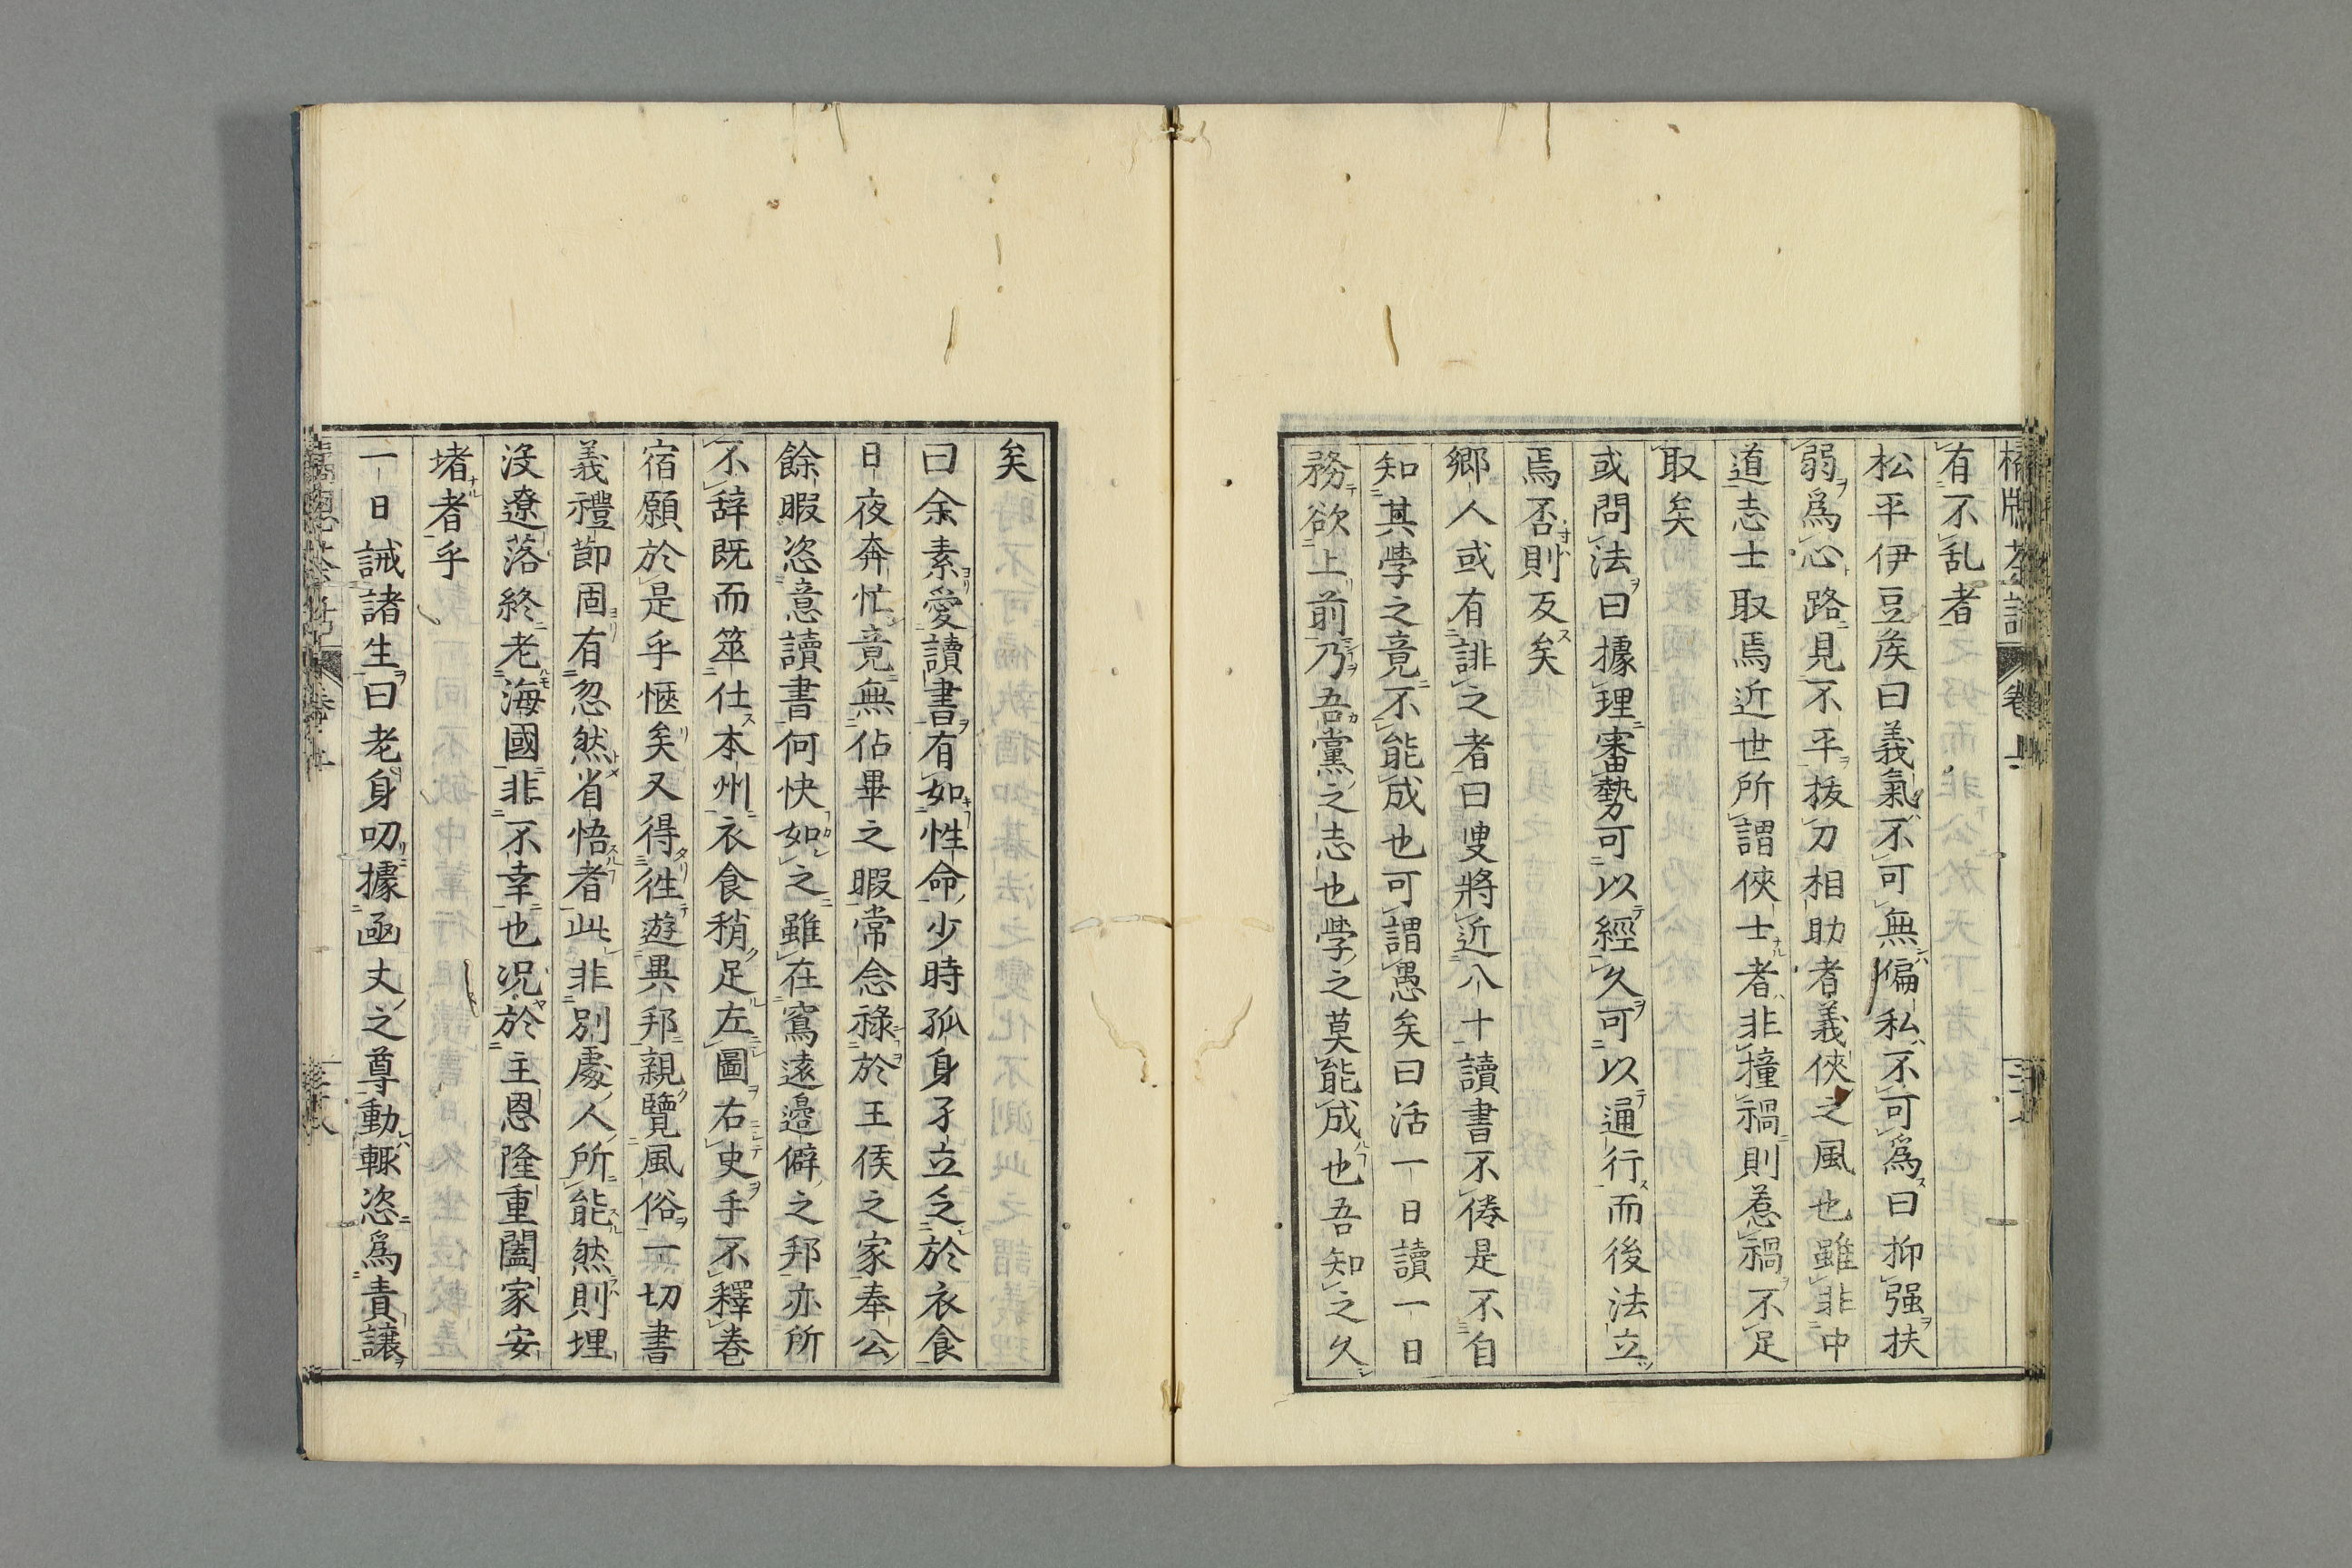 有不乱者
松平伊豆矦曰義氣不可無偏私不可爲曰抑强扶
弱爲心路見不平拔刀相助者義俠之風也雖非中
道志士取焉近世所謂俠士者非撞禍則惹禍不足
取矣
或問法曰據理審勢可以經久可以通行而後法立
焉否則反矣
鄉人或有誹之者曰叟將近八十讀書不倦是不自
知其學之竟不能成也可謂愚矣曰活一日讀一日
務欲上前乃吾黨之志也學之莫能成也吾知之久
矣
曰余素愛讀書有如性命少時孤身孑立乏於衣食
日夜奔忙竟無佔畢之暇常念祿於王侯之家奉公
餘暇恣意讀書何快如之雖在窵遠邉僻之邦亦所
不辞既而筮仕本州衣食稍足左圖右史手不釋卷
宿願於是乎愜矣又得徃遊異邦親覽風俗一切書
義禮節固有忽然省悟者此非別處人所能然則埋
沒遼落終老海國非不幸也况於主恩隆重闔家安
堵者乎
一日誡諸生曰老身叨據函丈之尊動輙恣爲責讓